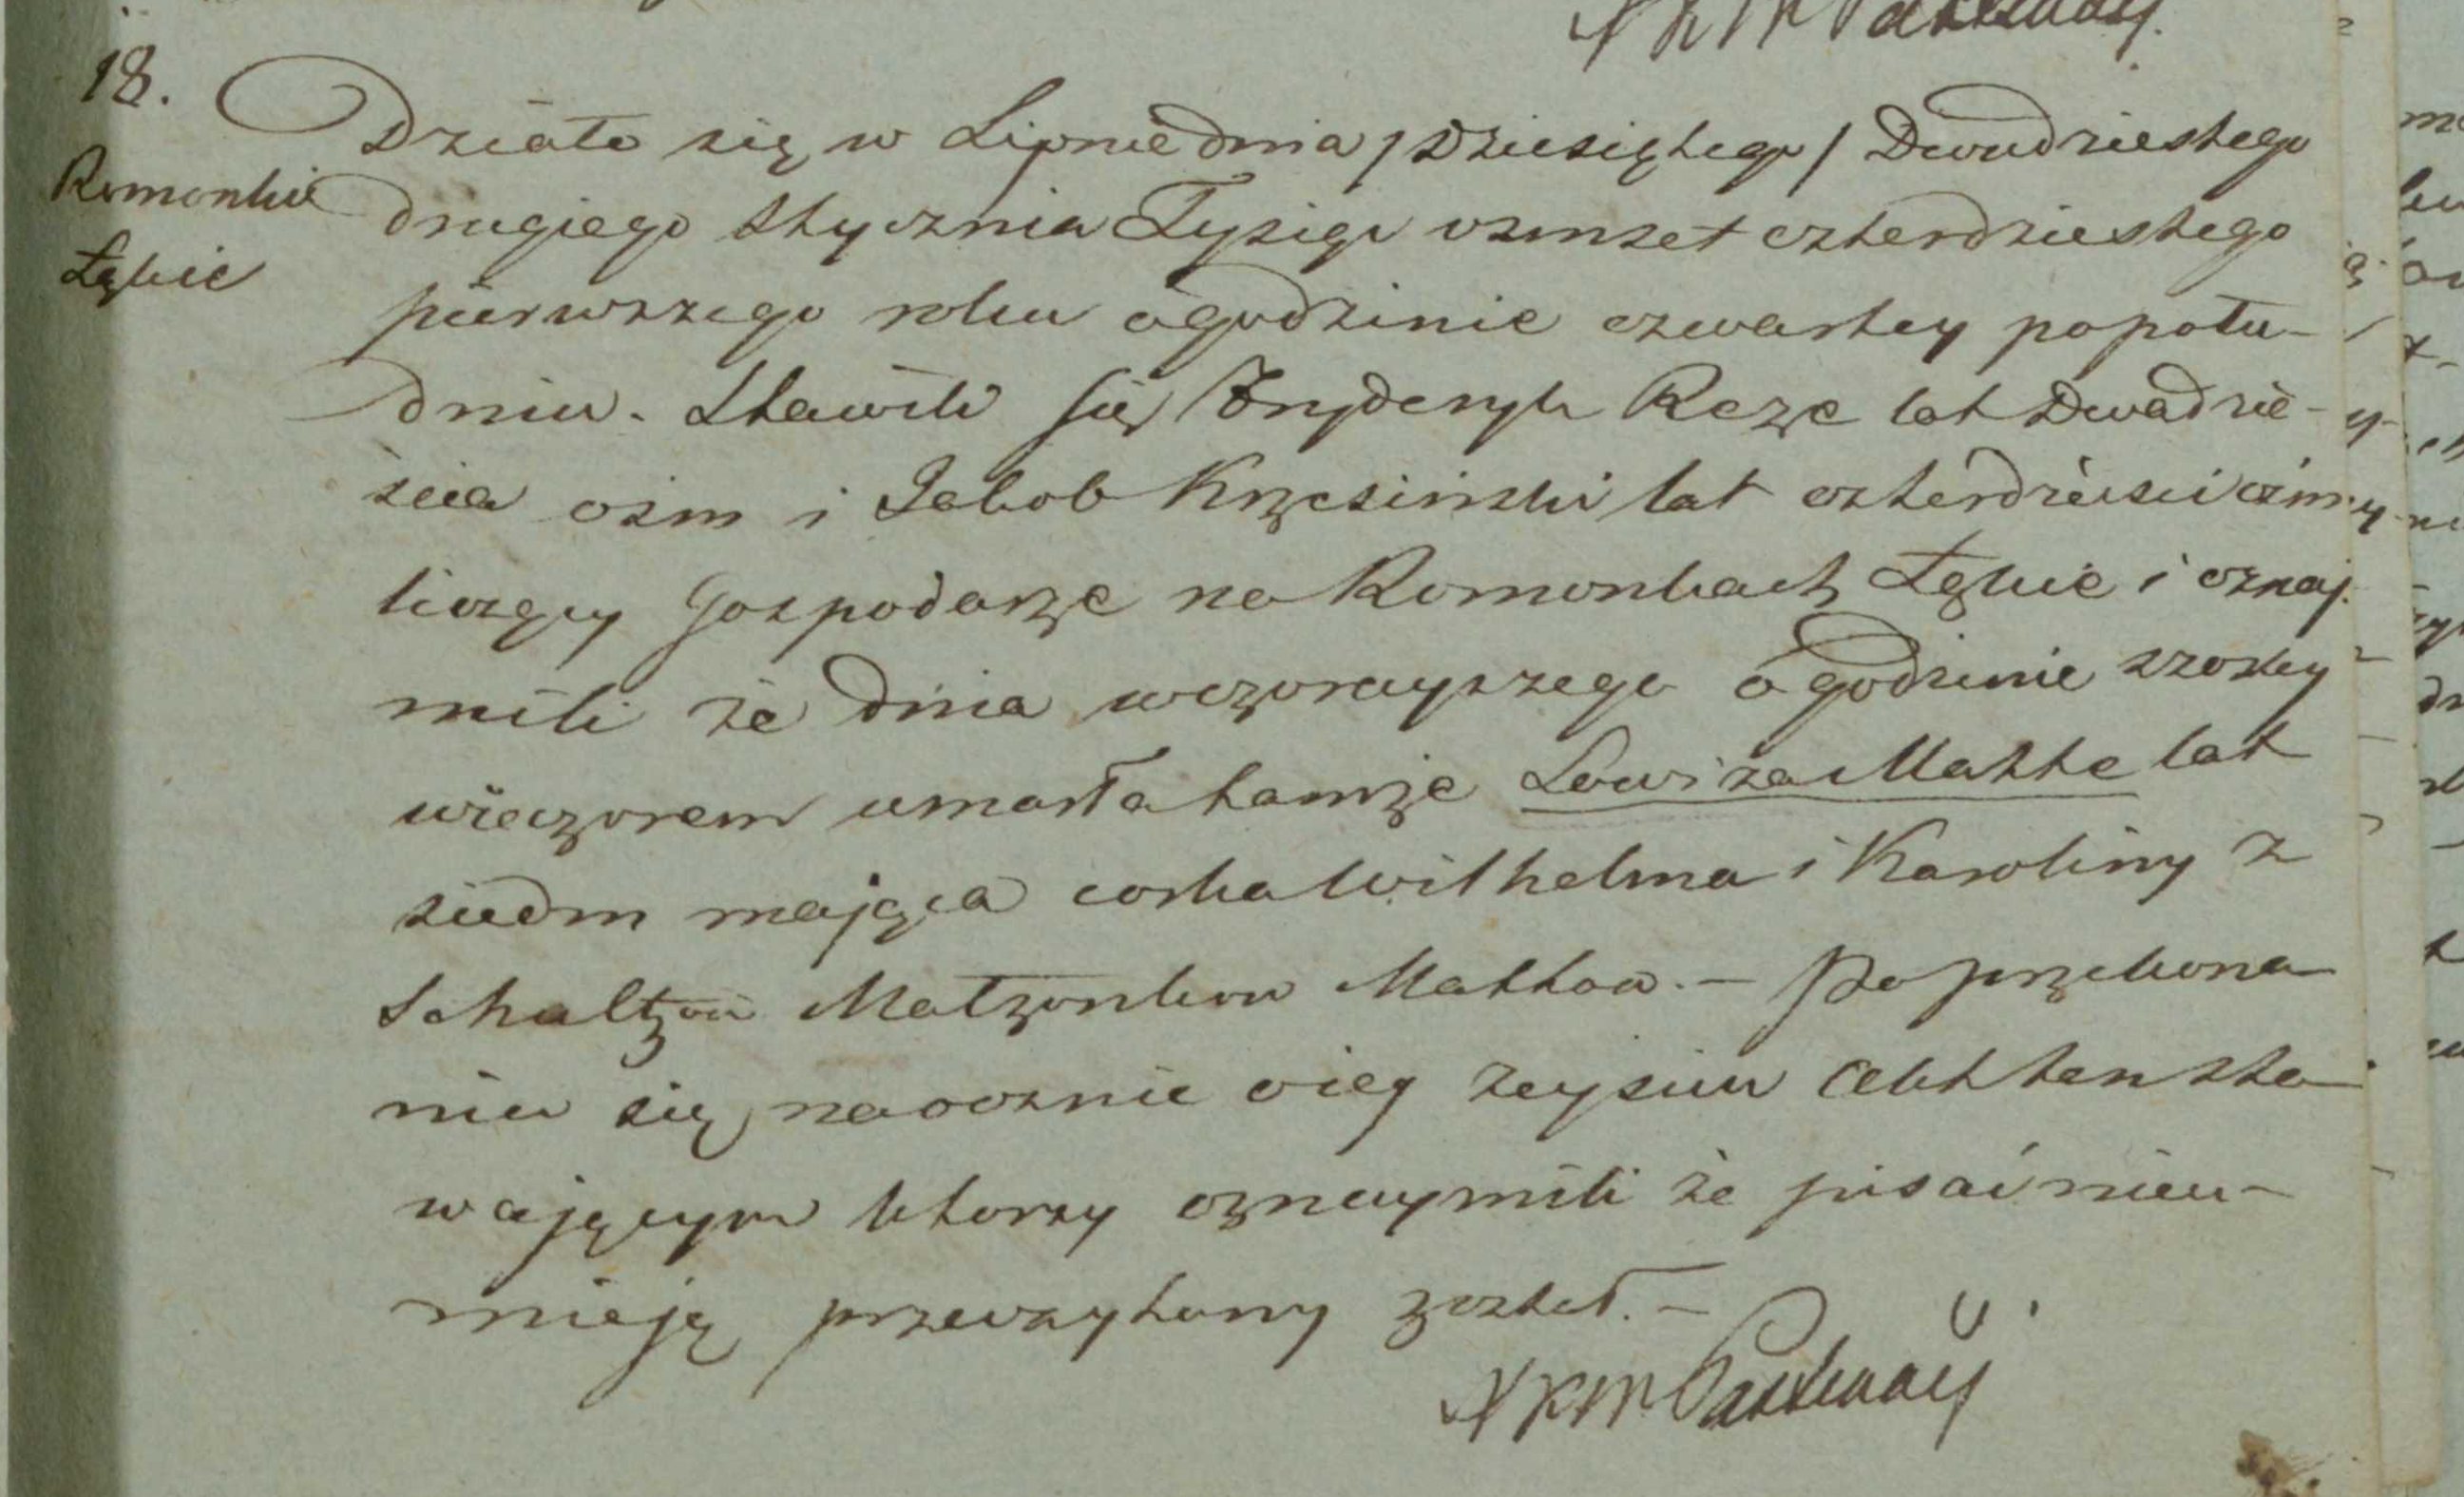 18.
Romonkie
Łąkie
Działo się w Lipnie dnia /Dziesiątego/ Dwudziestego
drugiego Stycznia Tysiąc osmset czterdziestego
pierwszego roku o godzinie czwartey popołu-
dniu. Stawili się Fryderyk Reze lat Dwadzie-
ścia ośm i Jakob Krzesiński lat czterdzieści ośm
liczący Gospodarze na Romonkach Łąkie i oznaj-
mili że dnia wczorayszego o godzinie szostey
wieczorem umarła tamże Lowiza Matke lat
siedm mająca corka Wilhelma i Karoliny z
Schultzow Małżonkow Matkow. – Po przekona
niu się naocznie o iey zeyściu Akt ten sta
wającym ktorzy oznaymili że pisać nieu-
mieją przeczytany został. –